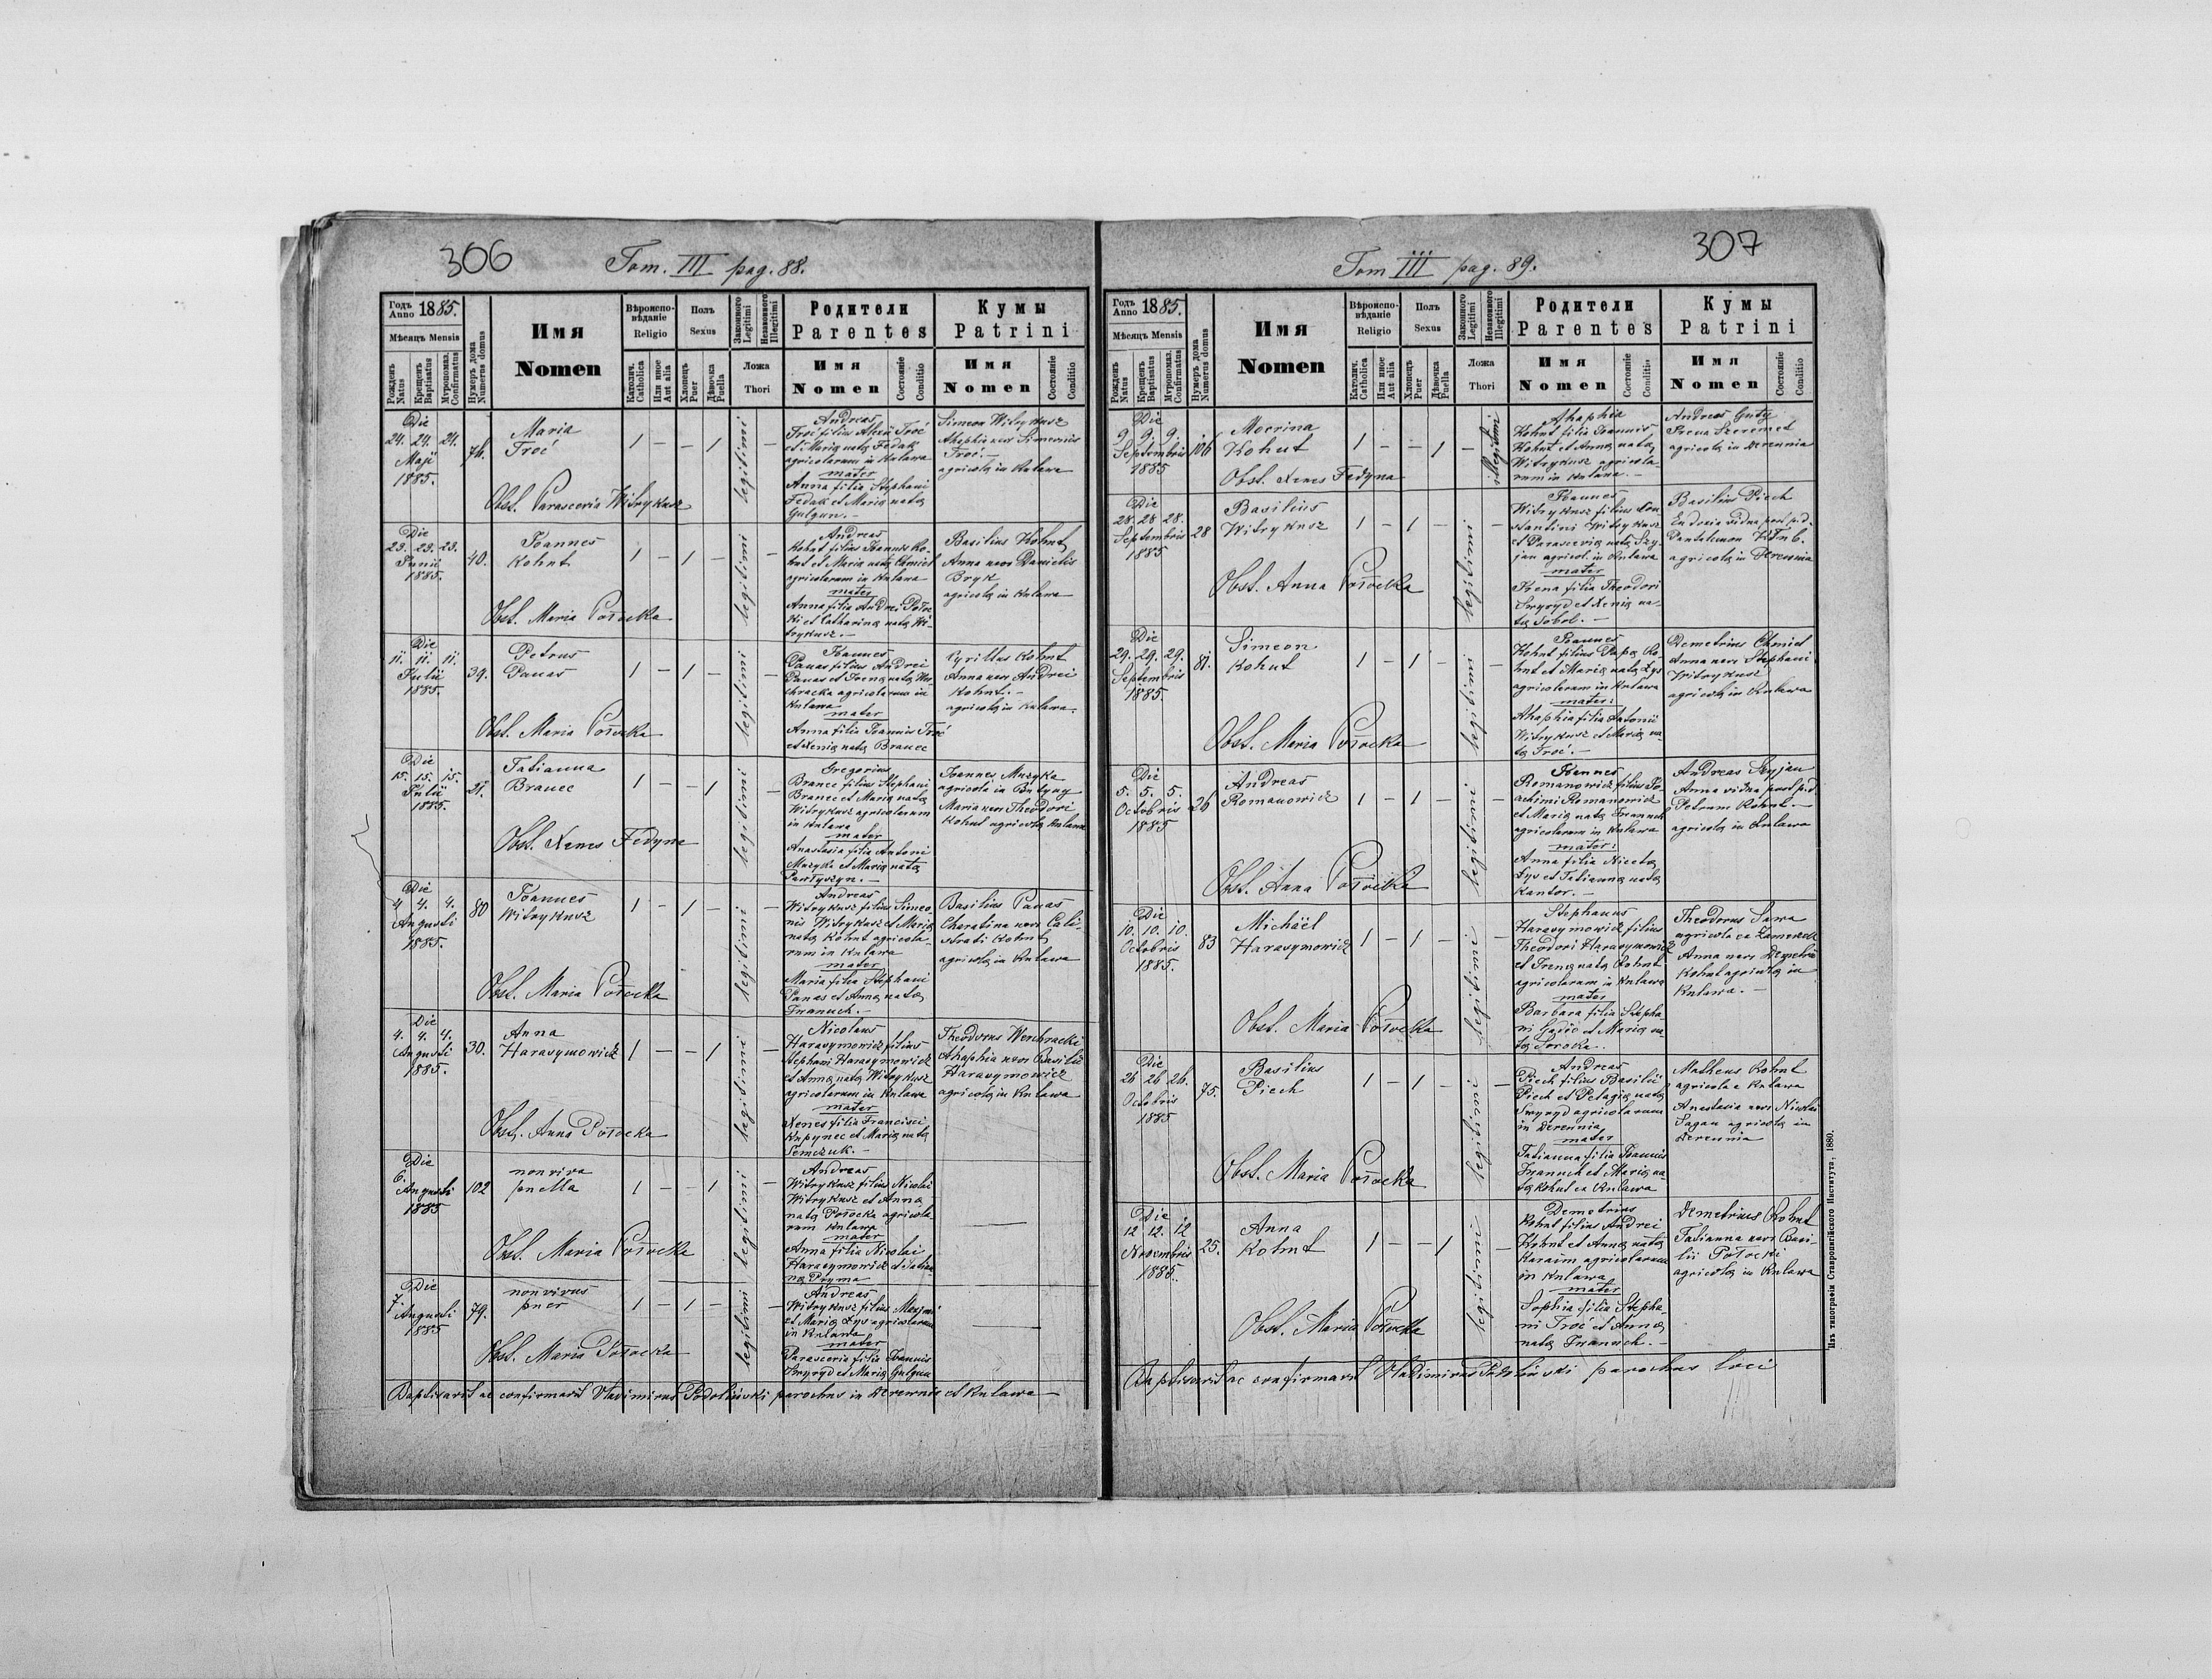 306
Tom. III pag. 88.
Годъ Anno 1885.
Мѣсяцъ Mensis
Рожденъ Natus
Крещенъ Baptisatus
Муропомаз. Confirmatus
Нумеръ дома Numerus domus
Имя
Nomen
Вѣроиспо-
вѣданіе
Religio
Католич. Catholica
Или иное Aut alia
Полъ
Sexus
Хлопецъ Puer
Дѣвочка Puella
Законного Legitimi
Незаконного Illegitimi
Ложа
Thori
Родители
Parentes
Имя
Nomen
Состояніе
Conditio
Кумы
Patrini
Имя
Nomen
Состояніе
Conditio
Die
24. 24. 24.
Maji
1885.
76.
Maria
Troć
1 — — 1
legitimi
Obst. Parascevia Witrykusz
Andreas
Troć filius Alexii Troć
et Mariæ natæ Fedak
agricolarum in Kulawa
mater
Anna filia Stephani
Fedak et Mariæ natæ
Gulgun. —
Simeon Witrykusz
Ahaphia uxor Simeonis
Troć. —
agricolæ in Kulawa
Die
23. 23. 23.
Junii
1885.
40.
Joannes
Kohut
1 — 1 —
legitimi
Obst. Maria Potocka
Andreas
Kohut filius Joannis Ko-
hut et Mariæ natæ Chmiel
agricolarum in Kulawa
mater
Anna filia Andrei Potoc
ki et Catharinæ natæ Wi-
trykusz. —
Basilius Kohut
Anna uxor Danielis
Bryk
agricolæ in Kulawa
Die
11. 11. 11.
Julii
1885.
39.
Petrus
Panas
1 — 1 —
legitimi
Obst. Maria Potocka
Joannes
Panas filius Andrei
Panas et Irenæ natæ
agricolarum in
Kulawa
mater
Anna filia Joannis Troć
et Xeniæ natæ Branec
Cyrillus Kohut
Anna uxor Andrei
Kohut. —
agricolæ in Kulawa.
Die
15. 15. 15.
Julii
1885.
Tatianna
Branec
1 — — 1
legitimi
Obst. Xenes Fedyna
Gregorius
Branec filius Stephani
Branec et Mariæ natæ
Witrykusz agricolarum
in Kulawa
mater
Anastasia filia Antoni
Muzyka et Mariæ natæ
Pawłyszyn. —
Joannes Muzyka
agricola in Butyny
Maria uxor Theodori
Kohut agricolæ Kulawa
Die
4 4. 4.
Augusti
1885.
80
Joannes
Witrykusz
1 — 1 —
legitimi
Obst. Maria Potocka
Andreas
Witrykusz filius Simeo-
nis Witrykusz et Mariæ
natæ Kohut agricola-
rum in Kulawa
mater
Maria filia Stephani
Panas et Annæ natæ
Iwanuch. —
Basilius Panas
Charatina uxor Cali-
strati Kohut
agricolæ in Kulawa
Die
4. 4. 4.
Augusti
1885.
30.
Anna
Harasymowicz
1 — — 1
legitimi
Obst. Anna Potocka
Nicolaus
Harasymowicz filius
Stephani Harasymowicz
et Annæ natæ Witrykusz
agricolarum in Kulawa
mater
Xenes filia Francisci
Kupynec et Mariæ natæ
Semczuk. —
Theodorus Werchracki
Ahaphia uxor Basilii
Harasymowicz
agricolæ in Kulawa
Die
6.
Augusti
1885
102
non viva
puella
1 — — 1
legitimi
Obst. Maria Potocka
Andreas
Witrykusz filius Nicolai
Witrykusz et Annæ
natæ Potocka agricola
rum Kulawa
mater
Anna filia Nicolai
Harasymowicz et Tatian-
næ Pryma
Die
7.
Augusti
1885
79.
non vivus
puer
1 — 1 —
legitimi
Obst. Maria Potocka
Andreas
Witrykusz filius Maxymi
et Mariæ Łys agricolarum
in Kulawa
mater
Parascevia filia Joannis
Swyryd et Mariæ Gulgun
Baptisavit ac confirmavit Vladimirus Podoliński parochus in Derewnia et Kulawa
307
Tom III pag. 89.
Годъ Anno 1885.
Мѣсяцъ Mensis
Рожденъ Natus
Крещенъ Baptisatus
Муропомаз. Confirmatus
Нумеръ дома Numerus domus
Имя
Nomen
Вѣроиспо-
вѣданіе
Religio
Католич. Catholica
Или иное Aut alia
Полъ
Sexus
Хлопецъ Puer
Дѣвочка Puella
Законного Legitimi
Незаконного Illegitimi
Ложа
Thori
Родители
Parentes
Имя
Nomen
Состояніе
Conditio
Кумы
Patrini
Имя
Nomen
Состояніе
Conditio
Die
9. 9. 9.
Septembris
1885
106
Mocrina
Kohut
1 — — 1 —
illegitimi
Obst. Xenes Fedyna
Ahaphia
Kohut filia Joannis
Kohut et Annæ natæ
Witrykusz agricola-
rum in Kulawa. —
Andreas Guty
Szeremet
agricolæ in Derewnia
Die
28. 28. 28.
Septembris
1885
28
Basilius
Witrykusz
1 — 1 —
legitimi
Obst. Anna Potocka
Joannes
Witrykusz filius Con-
stantini Witrykusz
et Parasceviæ natæ Szy-
jan agricol. in Kulawa
mater
filia Theodori
Swyryd et Xeniæ na-
tæ Sobol. —
Basilius Piech
Eudoxia vidua post p. d.
Pantelemon
agricolæ in Derewnia
Die
29. 29. 29.
Septembris
1885.
81.
Simeon
Kohut
1 — 1 —
legitimi
Obst. Maria Potocka
Joannes
Kohut filius Ko-
hut et Mariæ natæ Łys
agricolarum in Kulawa
mater:
Ahaphia filia Antonii
Witrykusz et Mariæ na-
tæ Troć. —
Demetrius Chmiel
Anna uxor Stephani
Witrykusz
agricolæ in Kulawa
Die
5. 5. 5.
Octobris
1885
26
Andreas
Romanowicz
1 — 1 —
legitimi
Obst. Anna Potocka
Joannes
Romanowicz filius Jo-
achimi Romanowicz
et Mariæ natæ Iwanuch
agricolarum in Kulawa
mater:
Anna filia Nicetæ
Łys et Tatiannæ natæ
Kantor. —
Andreas Szyjan
Anna vidua post p. d.
Petrum Kohut. —
agricolæ in Kulawa
Die
10. 10. 10.
Octobris
1885.
83
Michaël
Harasymowicz
1 — 1 —
legitimi
Obst. Maria Potocka
Stephanus
Harasymowicz filius
Theodori Harasymowicz
et Irenæ natæ Kohut
agricolarum in Kulawa
mater
Barbara filia Stepha
ni et Mariæ na-
tæ Soroka.
Theodorus Sawa
agricola ex
Anna uxor Demetrii
Kohut agricolæ in
Kulawa. —
Die
26 26 26.
Octobris
1885
75.
Basilius
Piech
1 — 1 —
legitimi
Obst. Maria Potocka
Andreas
Piech filius Basilii
Piech et Pelagiæ natæ
Swyryd agricolarum
in Derewnia
mater
Tatianna filia Joannis
Iwanuch et Mariæ na-
tæ Kohut ex Kulawa
Matheus Kohut
agricola e Kulawa
Anastasia uxor Nicolai
Sagan agricolæ in
Derewnia
Die
12 12. 12
Novembris
1885.
25.
Anna
Kohut
1 — — 1 —
legitimi
Obst. Maria Potocka
Demetrius
Kohut filius Andrei
Kohut et Annæ natæ
Karaim agricolarum
in Kulawa
mater
Sophia filia Stepha-
ni Troć et Annæ
natæ Iwanuch. —
Demetrius Kohut
Tatianna uxor Basi-
lii Potocki
agricolæ in Kulawa
Baptisavit ac confirmavit Vladimirus Podoliński parochus loci
Изъ типографіи Ставропигійского Института, 1880.